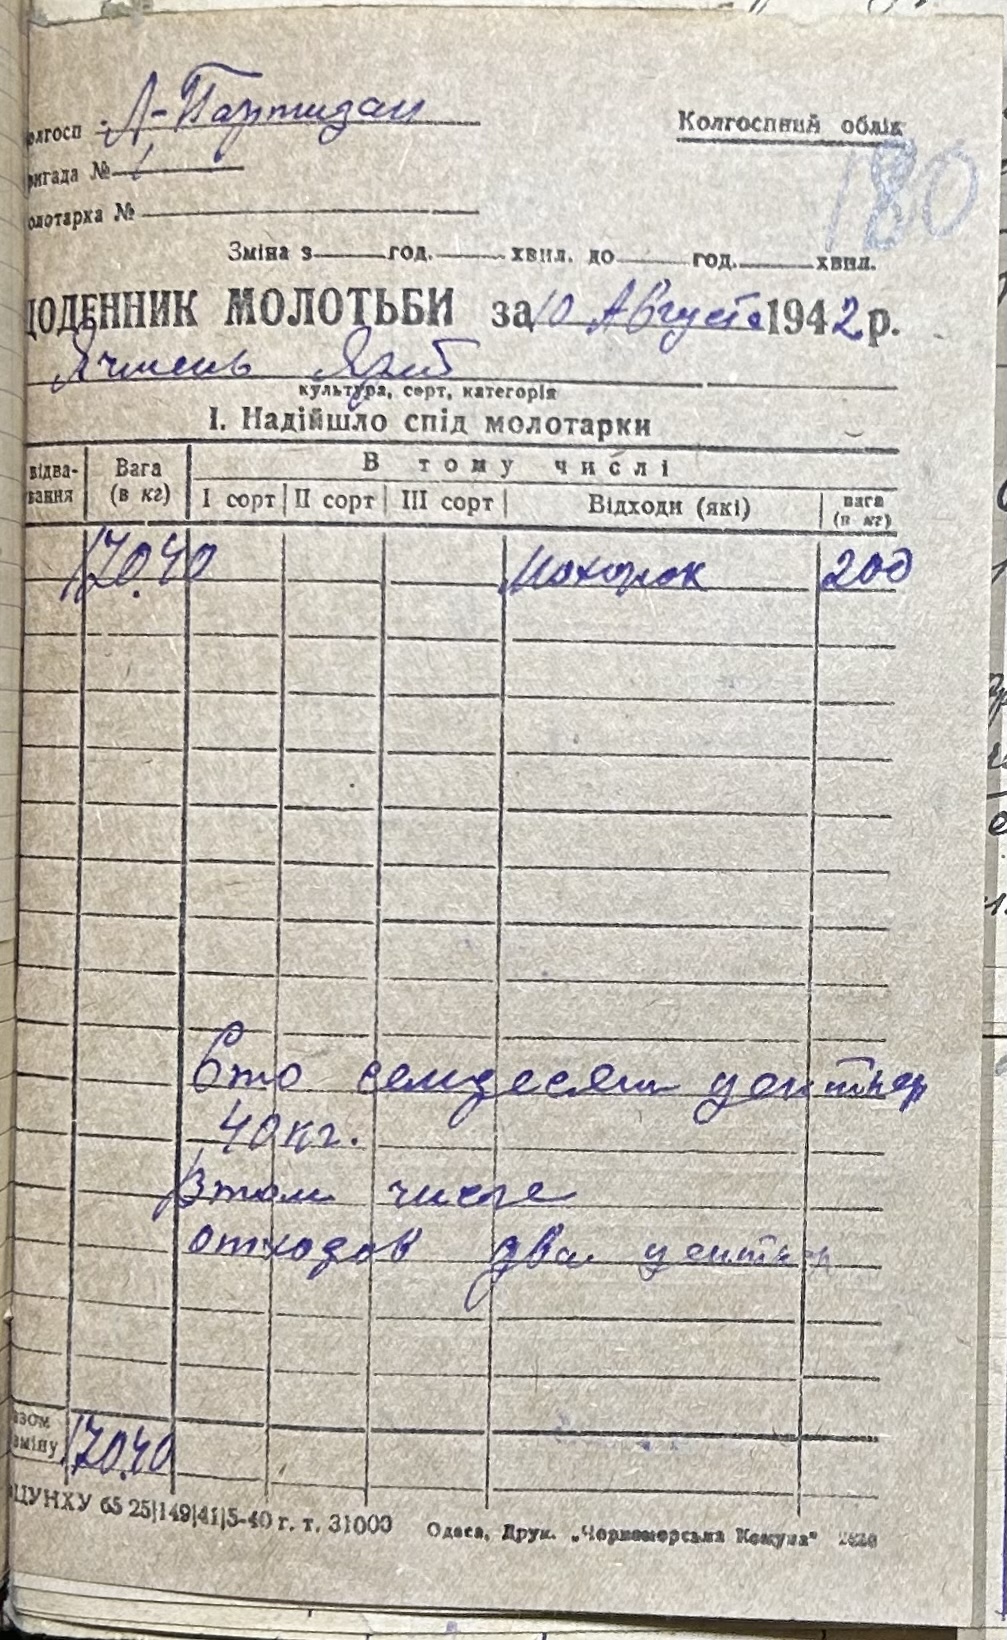 олгосп Л-Партизан
Колгоспний облік
ригада № 1
180
олотарка №
Зміна з год. хвил. до год. хвил.
ЩОДЕННИК МОЛОТЬБИ за 10 Августа 1942 р.
Ячмень
культура, сорт, категорія
І. Надійшло спід молотарки
відва-
вання
Вага
(в кг)
В тому числі
І сорт ІІ сорт ІІІ сорт Відходи (які) вага
(в кг)
170.40 200
Сто семдесят центнер
40 кг.
Втом числе
отходов два центнер
азом
зміну 170.40
ЦУНХУ 65 25|149|41|5-40 г. т. 31000 Одеса, Друк. „Чорноморська Комуна“